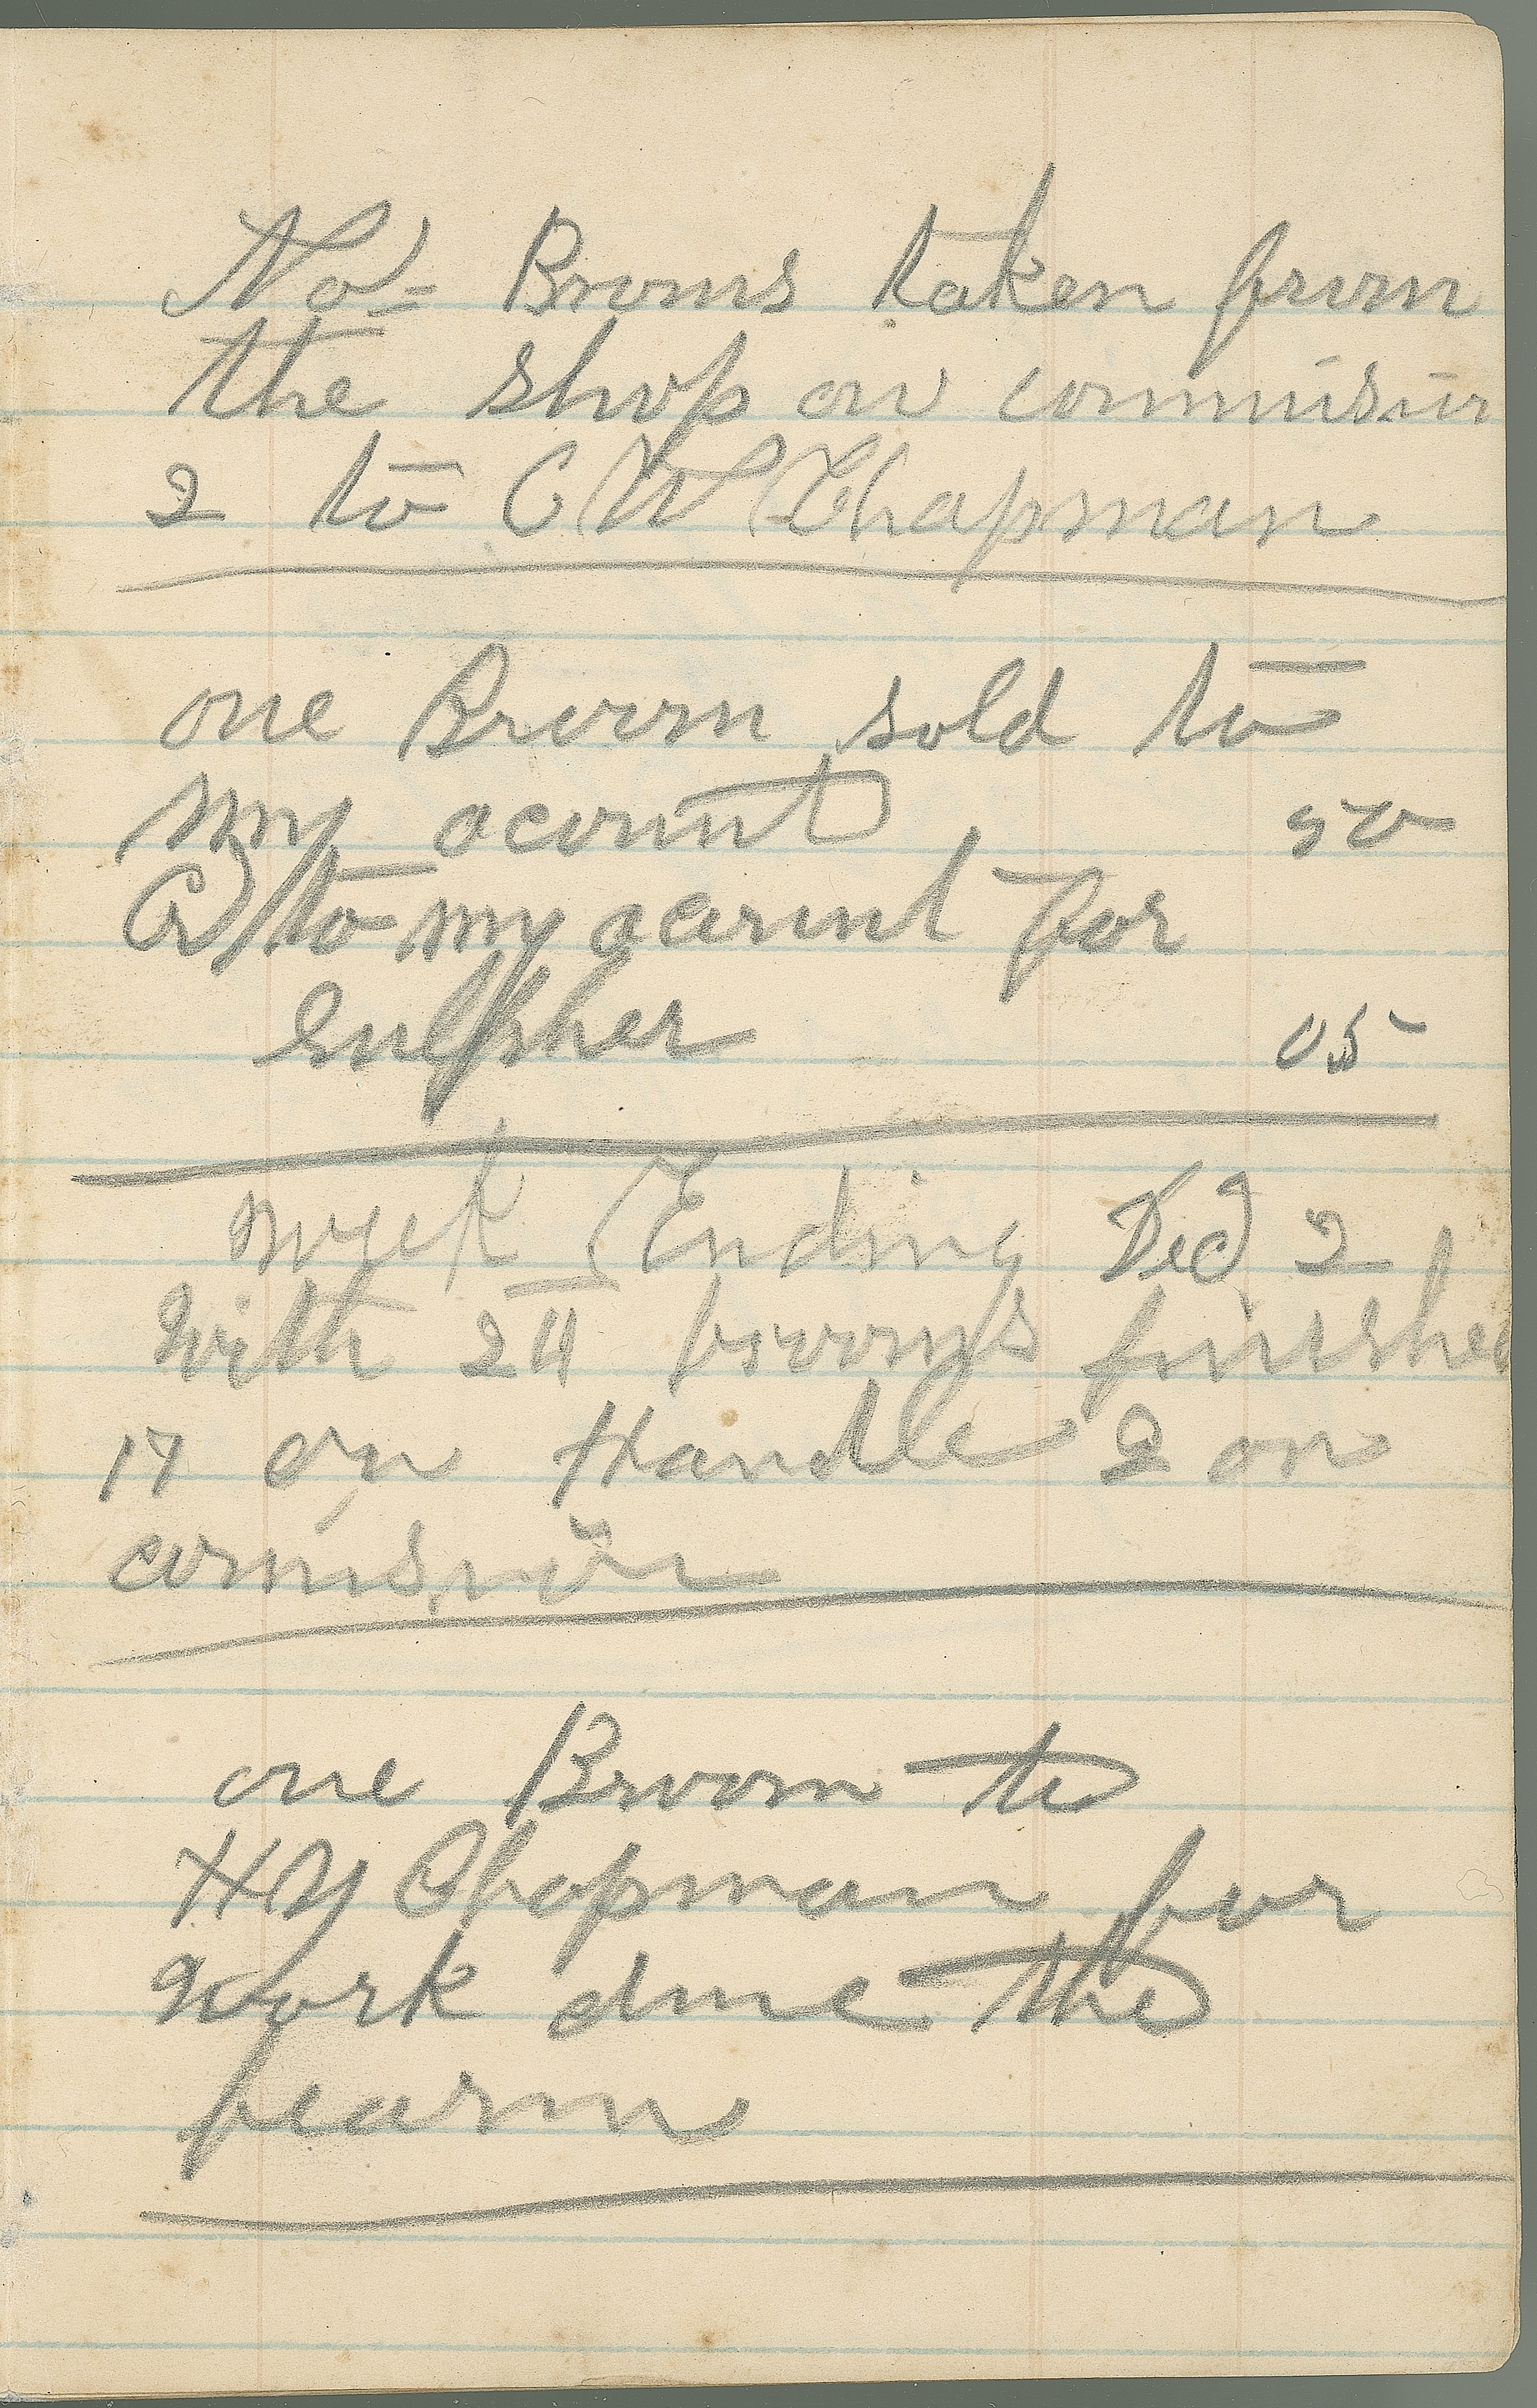 No= Brooms taken from
the shop on commision
2 to C W Chapman
one Broom sold to
my acount 50
Cr to my acount for
Sulpher 05
week Ending Dec 2
with 24 brooms finished
17 on Handle 2 on
comision
one Broom to
HY Chapman for
work done the
fearm